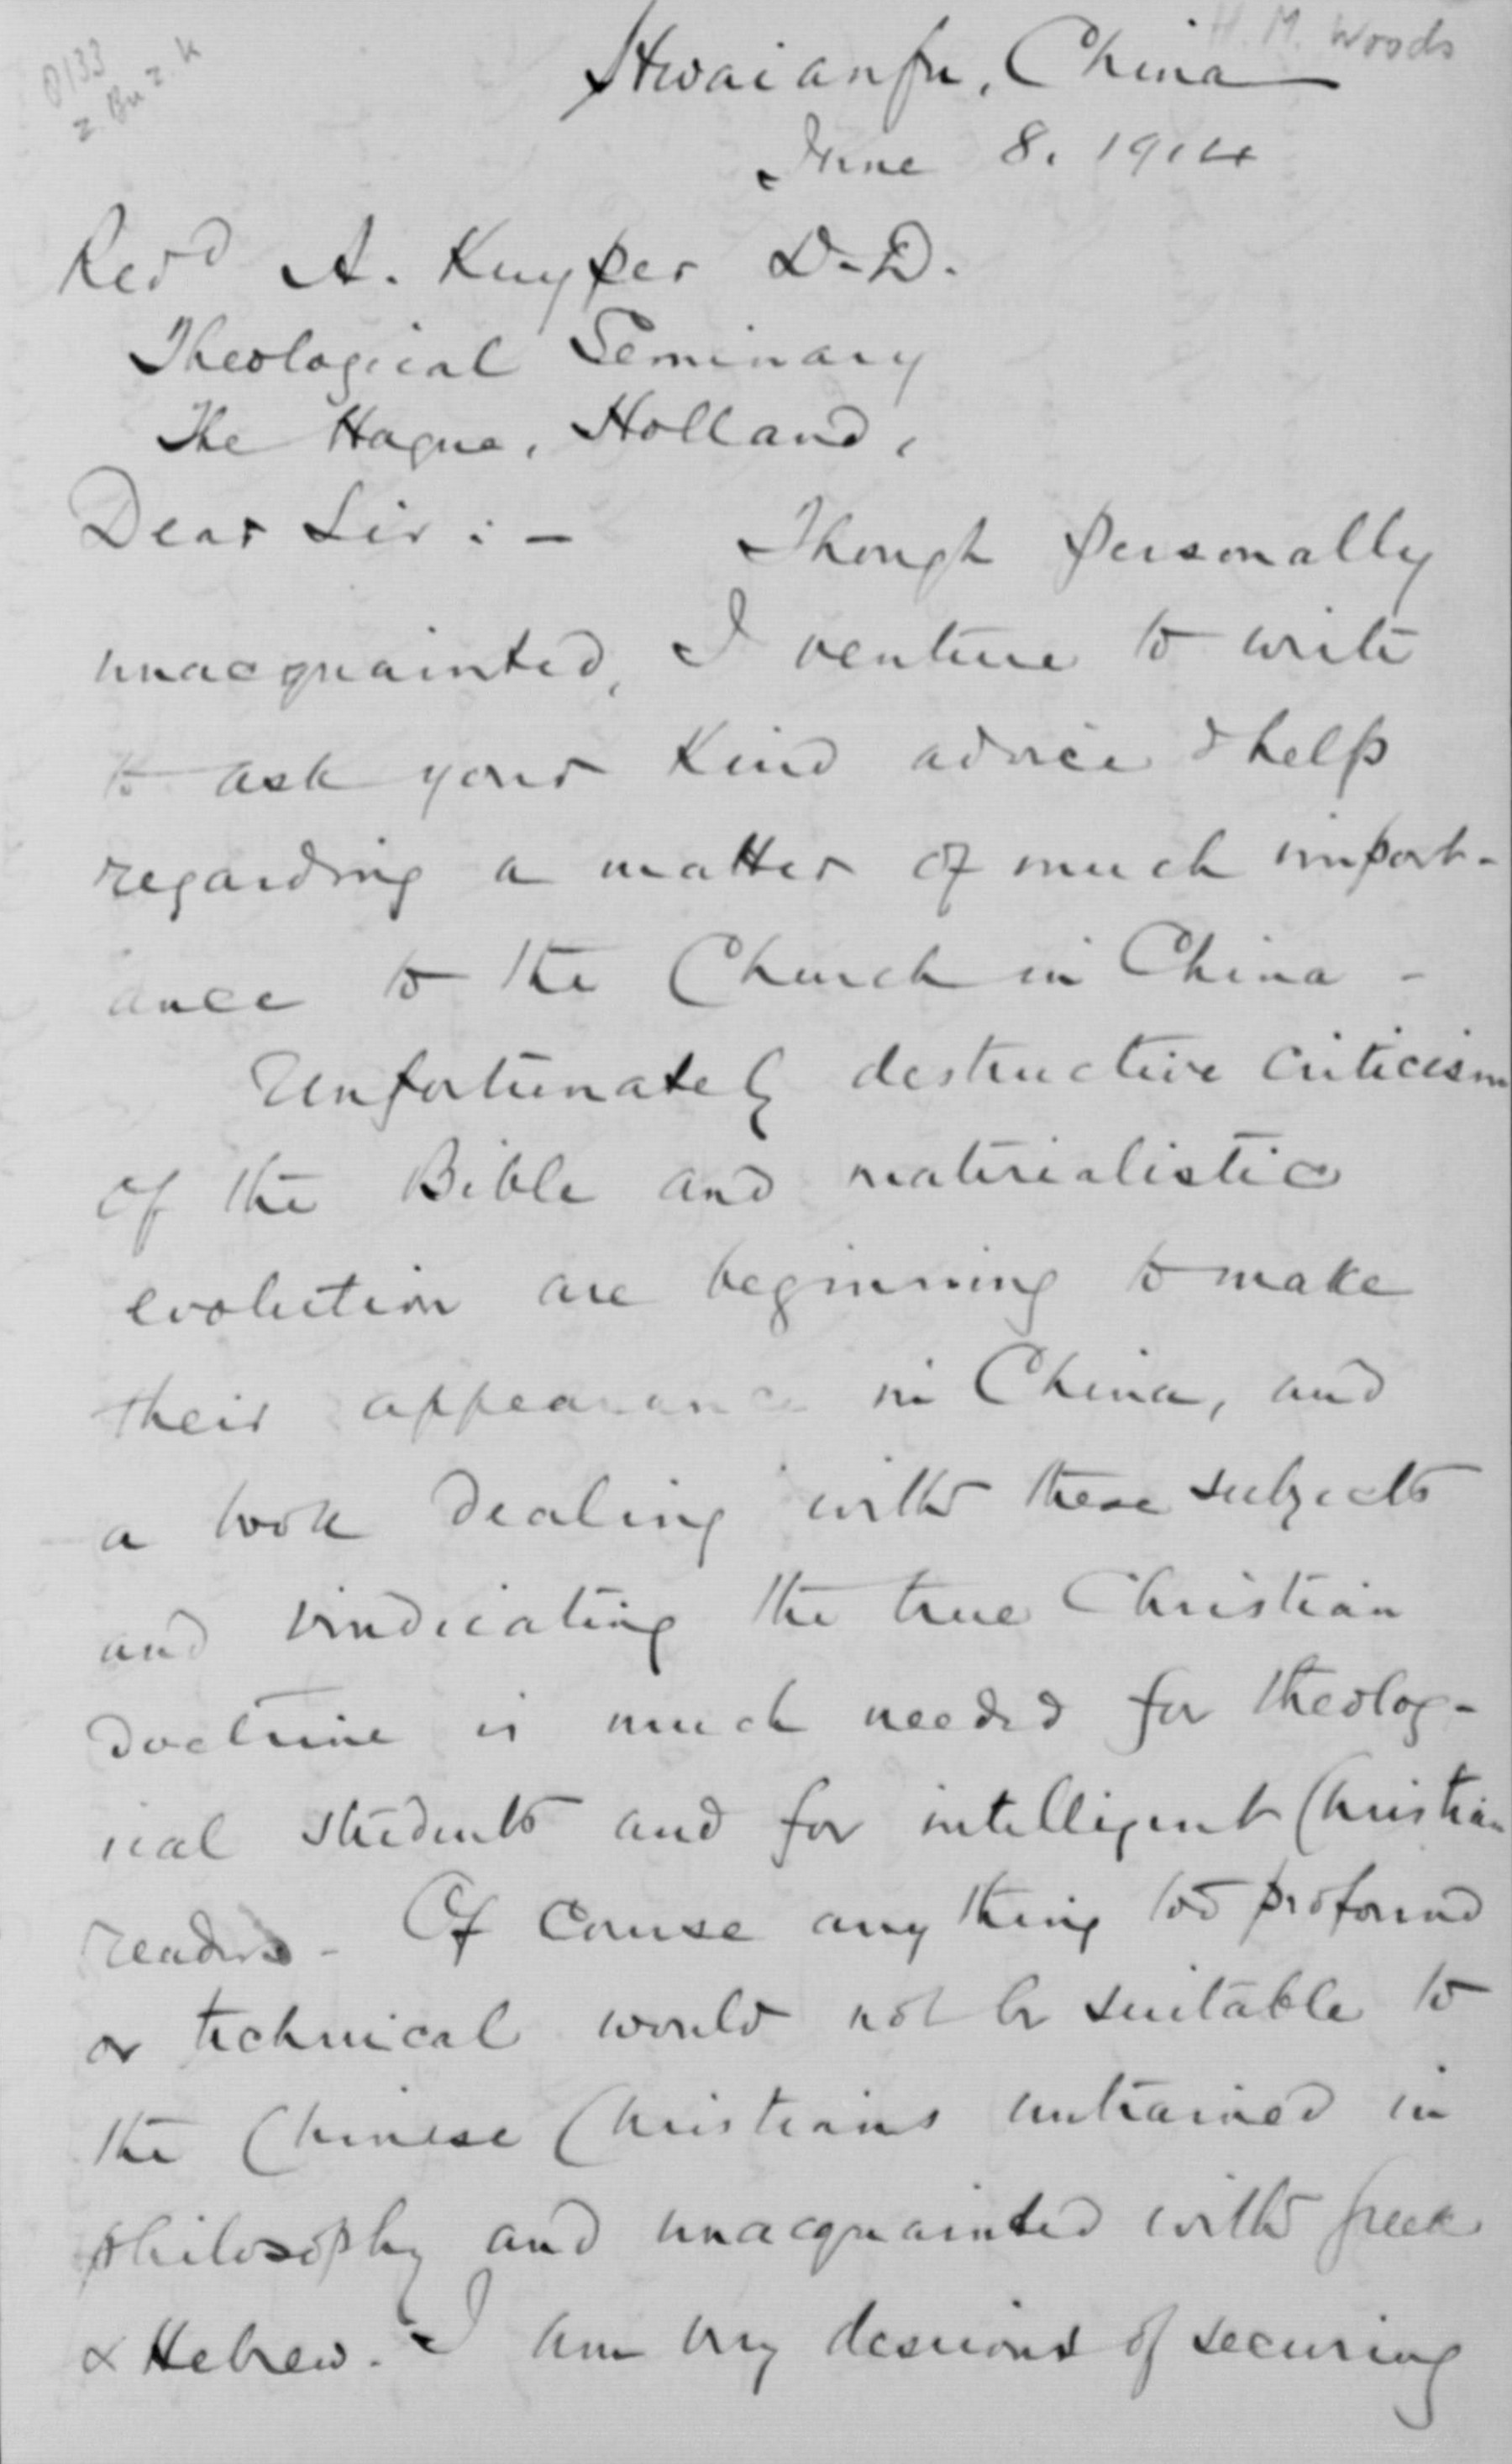 H. M. Woods
Hwaianfu, China
June 8. 1914
Revd A. Kuyper D.D.
Theological Seminary
The Hague, Holland,
Dear Sir : - Though personally
unacquainted, I venture to write
to ask your kind advice & help
regarding a matter of much import-
ance to the Church in China -
Unfortunately destructive criticism
of the Bible and materialistic
evolution are beginning to make
their appearance in China, and
a book dealing with these subjects
and vindicating the true Christian
doctrine is much needed for theolog-
ical students and for intelligent Christian
readers - Of course any thing too profound
or technical would not be suitable to
the Chinese Christians untrained in
philosophy and unacquainted with Greek
& Hebrew. I am very desirous of securing